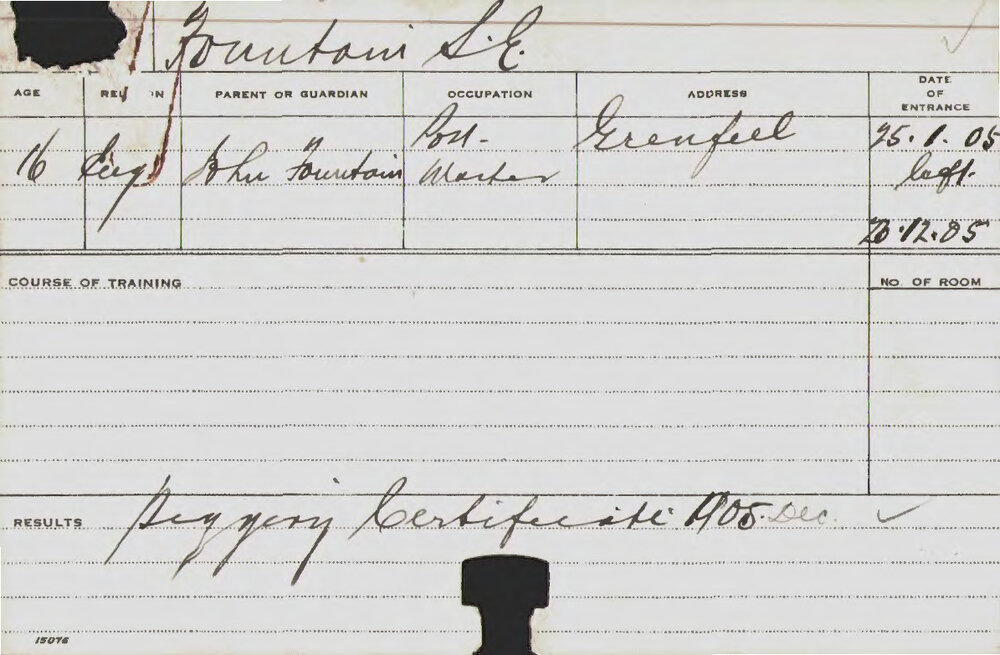 Fountain S. E.
AGE RELI N PARENT OR GUARDIAN OCCUPATION ADDRESS DATE OF ENTRANCE
16 John Fountain Post- Master Grenfell 25.1.05
left.
20.12.05
COURSE OF TRAINING NO. OF ROOM
RESULTS Piggery Certificate 1905. Dec.
15076